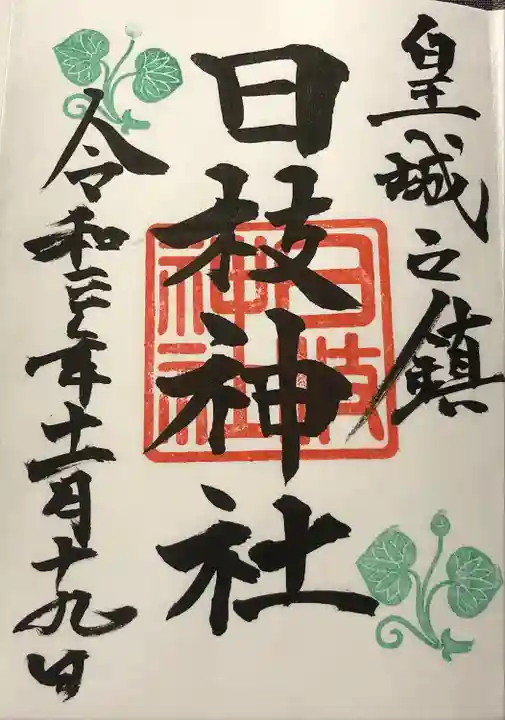 皇城之鎮
日枝神社
日枝神社
令和三年十一月十九日